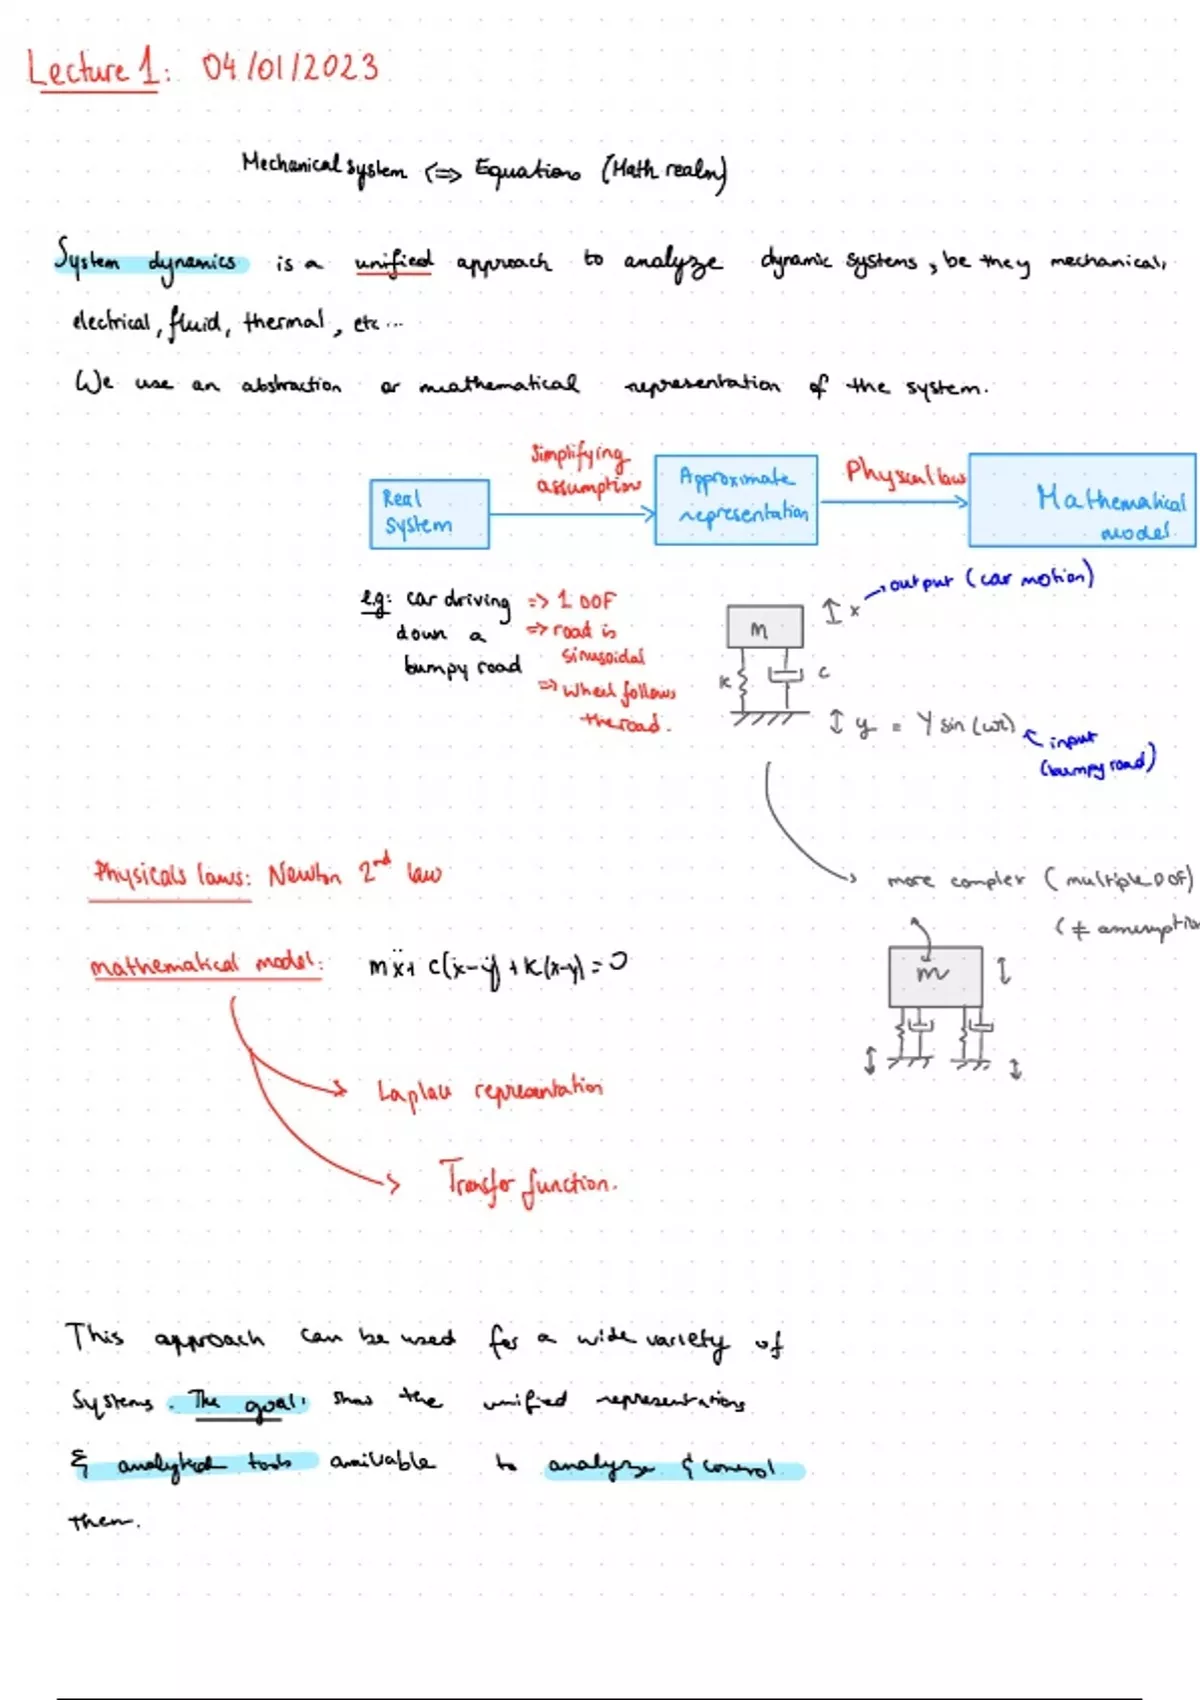 Lecture 1: 04/01/2023
Mechanical system <=> Equations (Math realm)
System dynamics is a unified approach to analyze dynamic systems, be they mechanical,
electrical, fluid, thermal, etc...
We use an abstraction or mathematical representation of the system.
Real
system
Simplifying
assumption
Approximate
representation
Physical law
Mathematical
model
e.g: car driving
down a
bumpy road
=> 1 DOF
=> road is
sinusoidal
=> Wheel follows
the road.
m
k
c
x
output (car motion)
y = Y sin(ωt)
input
(bumpy road)
more complex (multiple DOF)
(≠ assumption
m
Physicals laws: Newton 2nd law
mathematical model: mẍ + c(ẋ-ẏ) + k(x-y) = 0
Laplace representation
Transfer function.
This approach can be used for a wide variety of
systems. The goal: show the unified representations
& analytical tools available to analyze & control
them.